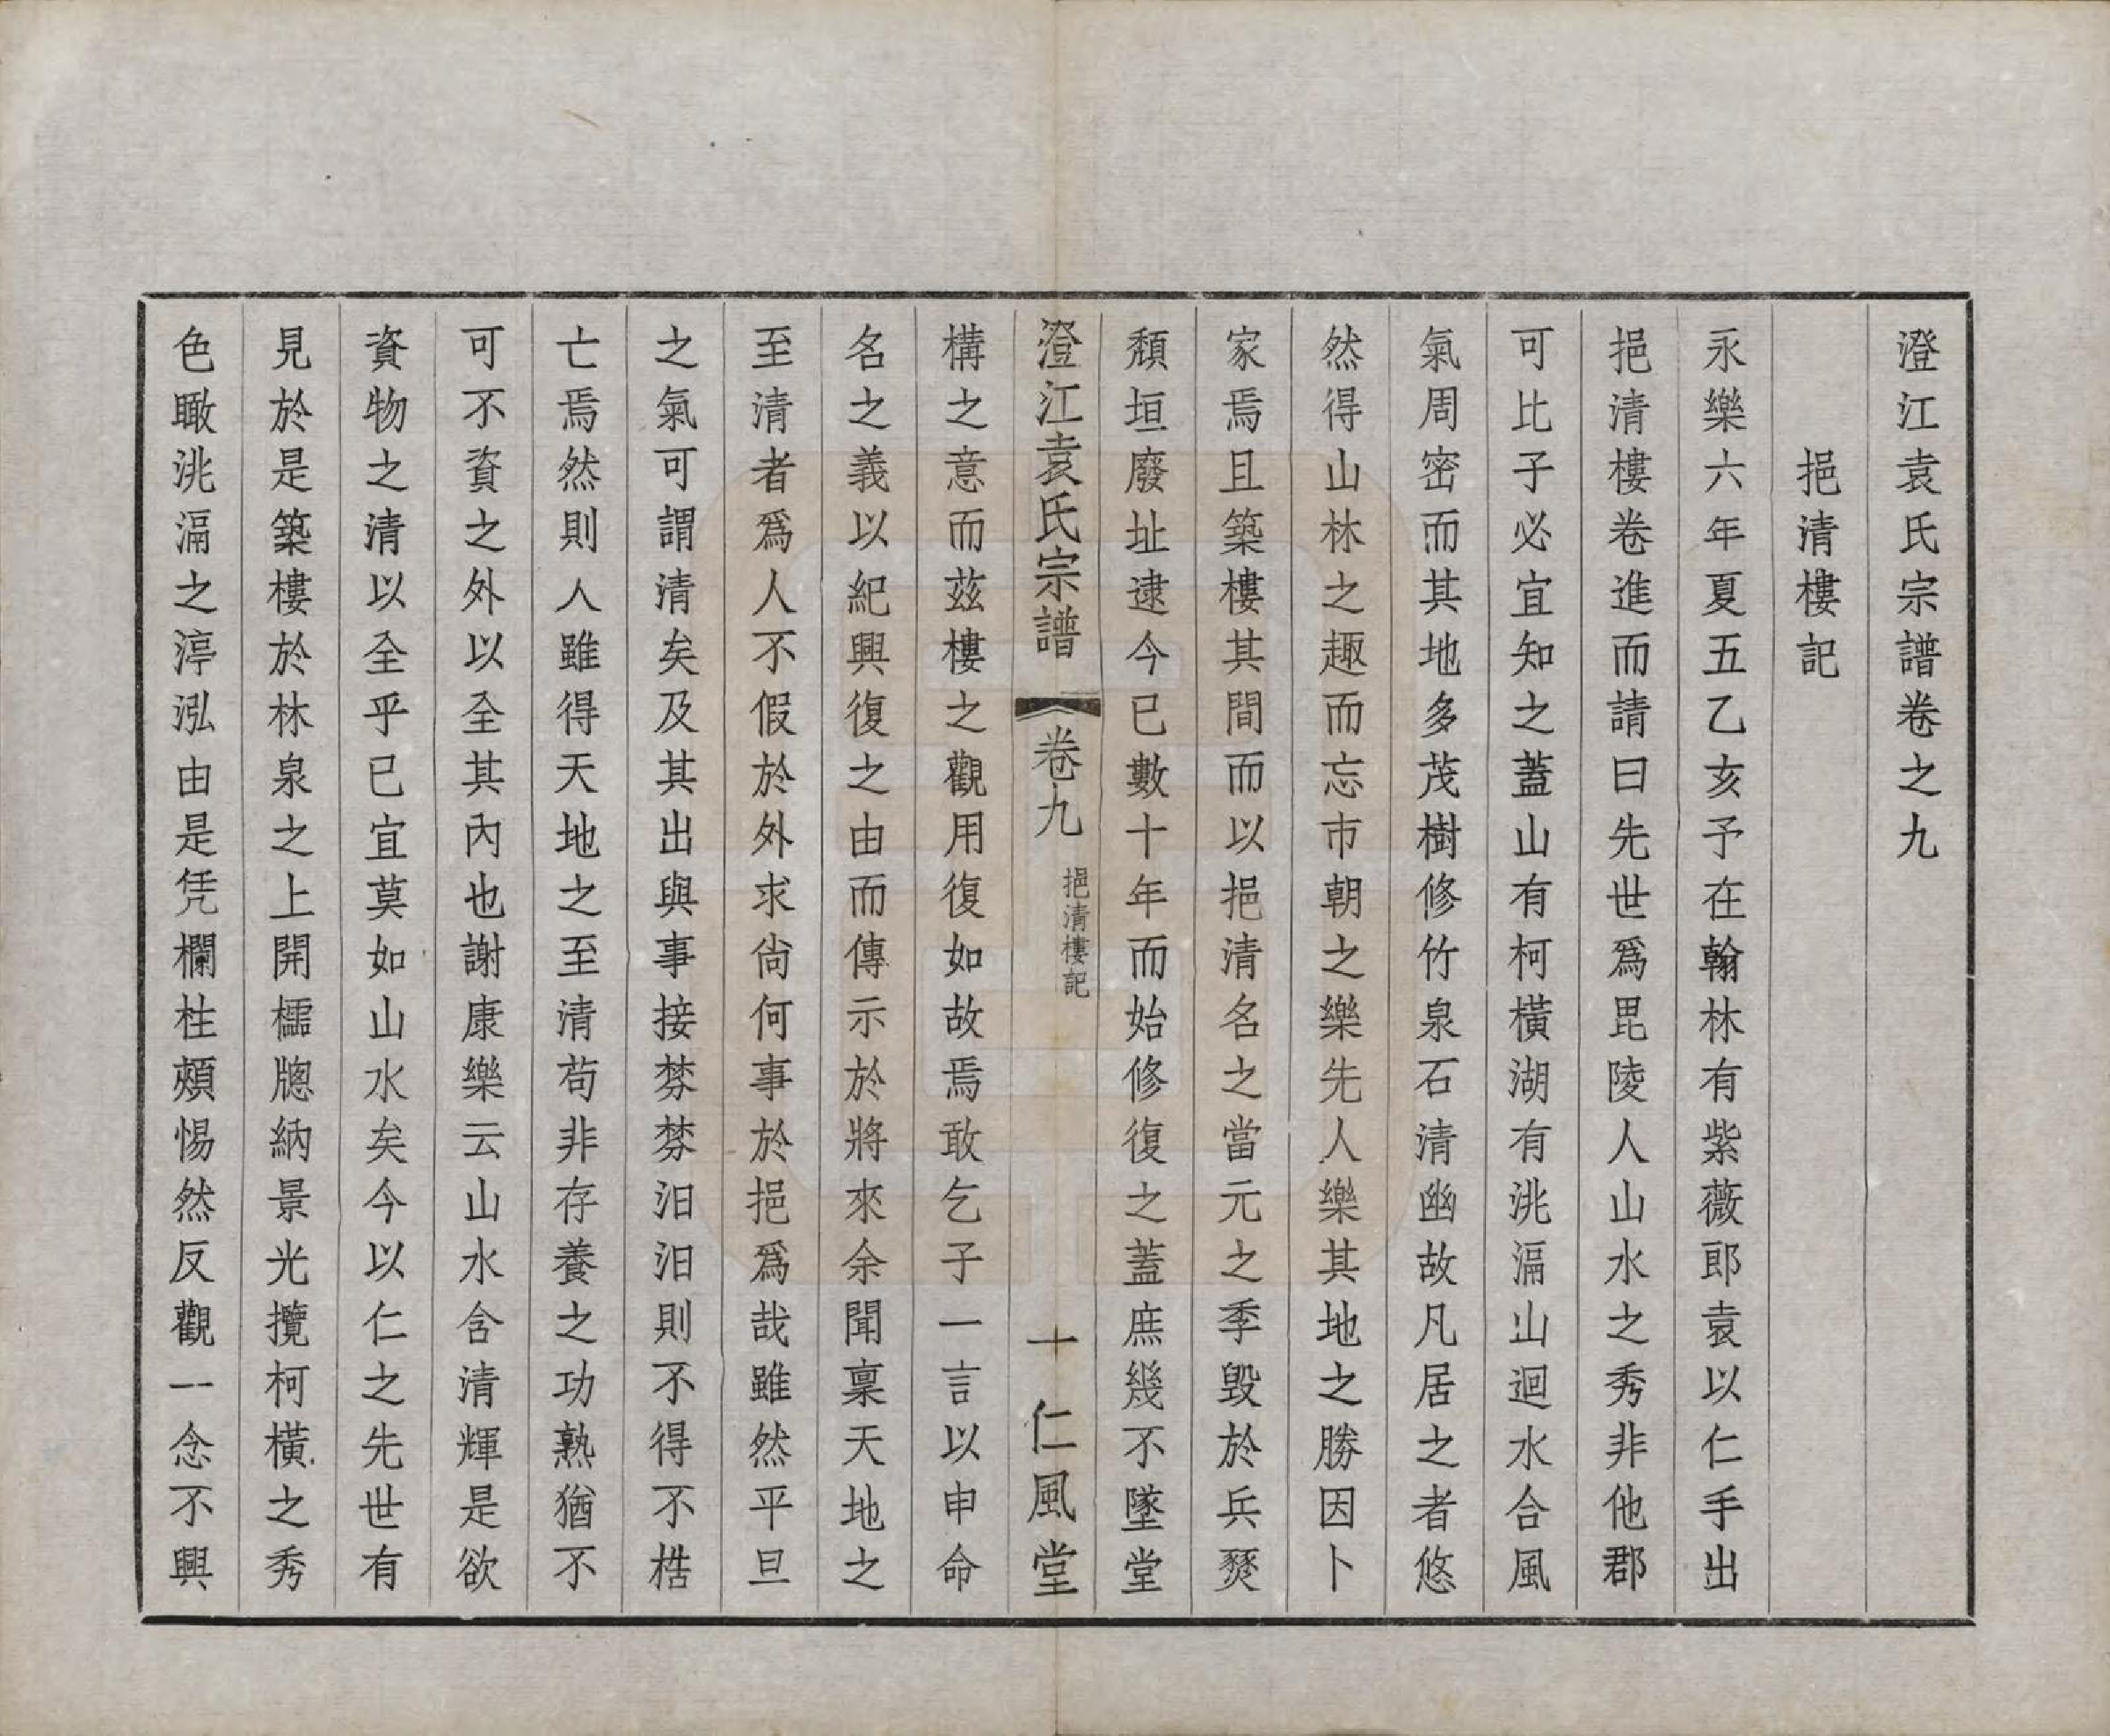 澄江袁氏宗譜卷之九
挹清樓記
永樂六年夏五乙亥予在翰林有紫薇郎袁以仁手出
挹清樓卷進而請曰先世爲毘陵人山水之秀非他郡
可比子必宜知之蓋山有柯橫湖有洮滆山迴水合風
氣周密而其地多茂樹修竹泉石清幽故凡居之者悠
然得山林之趣而忘市朝之樂先人樂其地之勝因卜
家焉且築樓其間而以挹清名之當元之季毀於兵燹
頹垣廢址逮今已數十年而始修復之蓋庶幾不墜堂
澄江袁氏宗譜 卷九 挹清樓記 十 仁風堂
構之意而茲樓之觀用復如故焉敢乞子一言以申命
名之義以紀興復之由而傳示於將來余聞稟天地之
至清者爲人不假於外求尙何事於挹爲哉雖然平旦
之氣可謂清矣及其出與事接棼棼汨汨則不得不梏
亡焉然則人雖得天地之至清苟非存養之功熟猶不
可不資之外以全其內也謝康樂云山水含清輝是欲
資物之清以全乎已宜莫如山水矣今以仁之先世有
見於是築樓於林泉之上開櫺牕納景光攬柯橫之秀
色瞰洮滆之渟泓由是凭欄柱頰惕然反觀一念不興